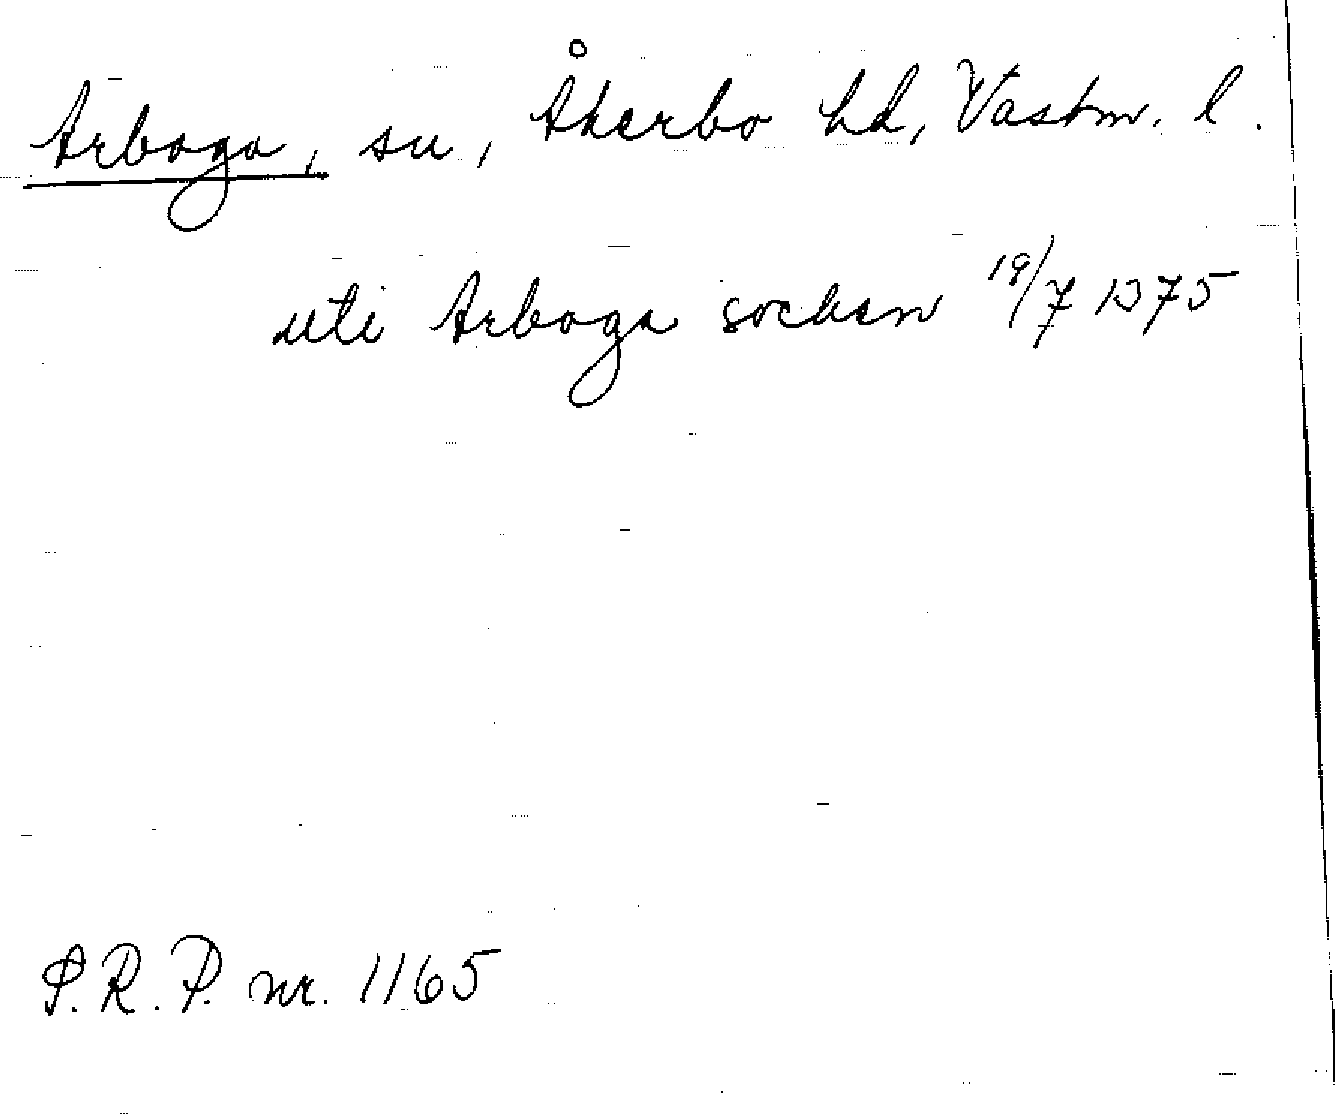 Arboga, sn, Åkerbo hd, Västm. l.
uti Arboga socken 19/7 1375
S.R.P. nr. 1165